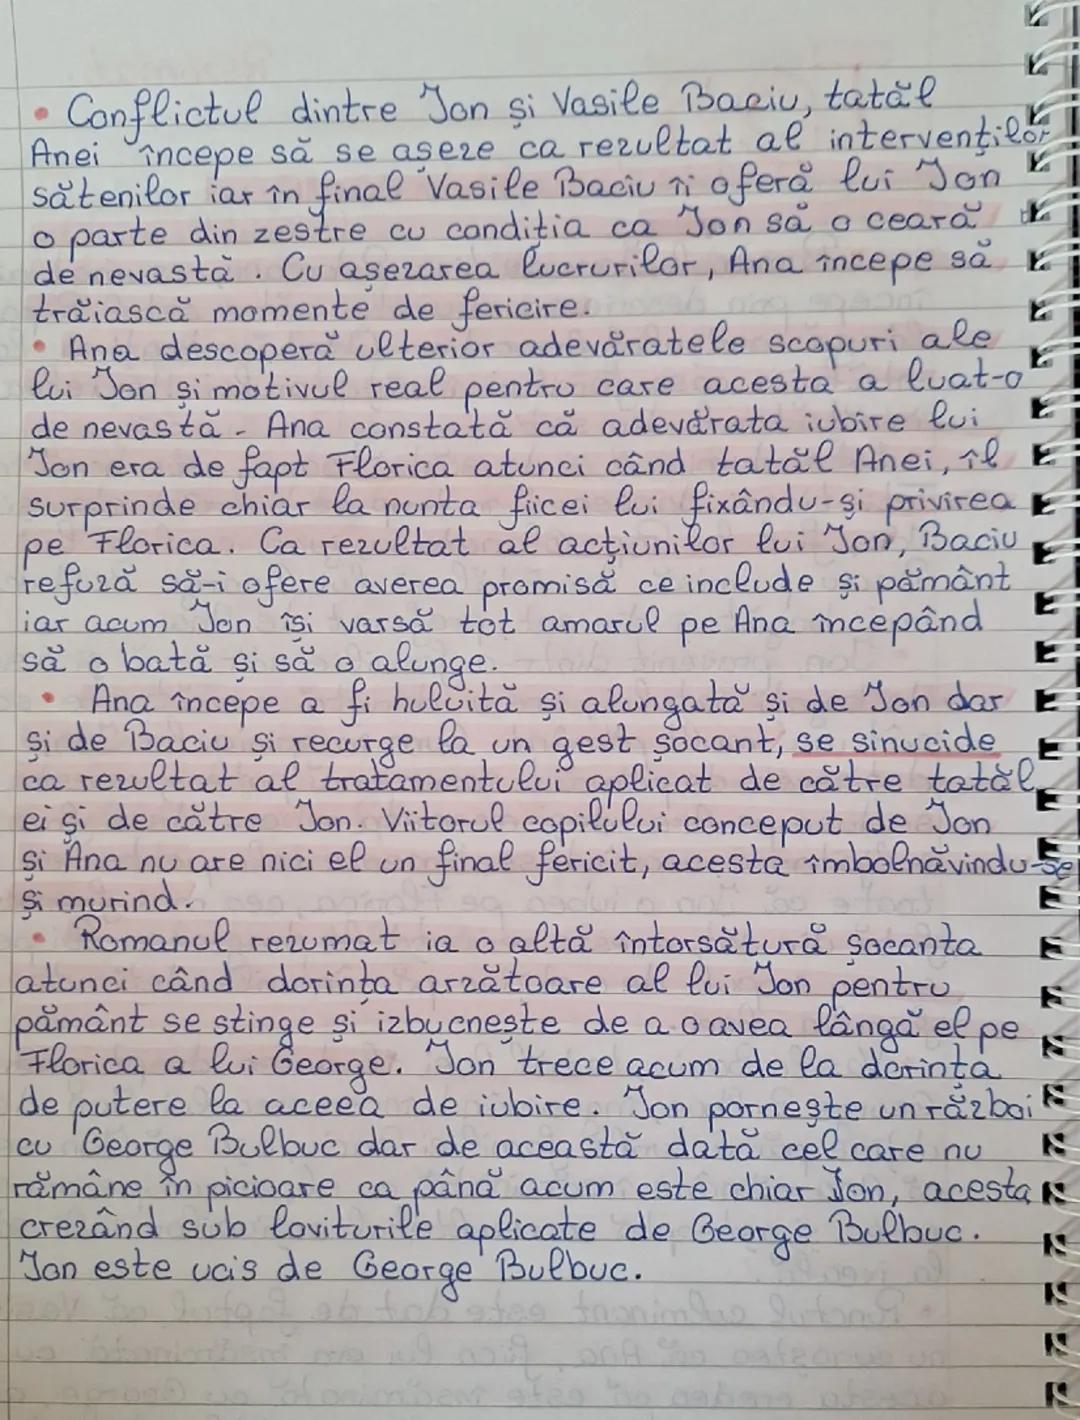 • Conflictul dintre Ion și Vasile Baciu, tatăl
Anei începe să se așeze ca rezultat al intervențiilor
sătenilor iar în final Vasile Baciu îi oferă lui Ion
o parte din zestre cu condiția ca Ion să o ceară
de nevastă. Cu așezarea lucrurilor, Ana începe să
trăiască momente de fericire.
• Ana descoperă ulterior adevăratele scopuri ale
lui Ion și motivul real pentru care acesta a luat-o
de nevastă. Ana constată că adevărata iubire lui
Ion era de fapt Florica atunci când tatăl Anei, îl
surprinde chiar la nunta fiicei lui fixându-și privirea
pe Florica. Ca rezultat al acțiunilor lui Ion, Baciu
refuză să-i ofere averea promisă ce include și pământ
iar acum Ion își varsă tot amarul pe Ana începând
să o bată și să o alunge.
• Ana începe a fi huluită și alungată și de Ion dar
și de Baciu și recurge la un gest șocant, se sinucide
ca rezultat al tratamentului aplicat de către tatăl
ei și de către Ion. Viitorul copilului conceput de Ion
și Ana nu are nici el un final fericit, acesta îmbolnăvindu-se
și murind.
• Romanul rezumat ia o altă întorsătură șocanta
atunci când dorința arzătoare al lui Ion pentru
pământ se stinge și izbucnește de a o avea lângă el pe
Florica a lui George. Ion trece acum de la dorința
de putere la aceea de iubire. Ion pornește un război
cu George Bulbuc dar de această dată cel care nu
rămâne în picioare ca până acum este chiar Ion, acesta
crezând sub loviturile aplicate de George Bulbuc.
Ion este ucis de George Bulbuc.